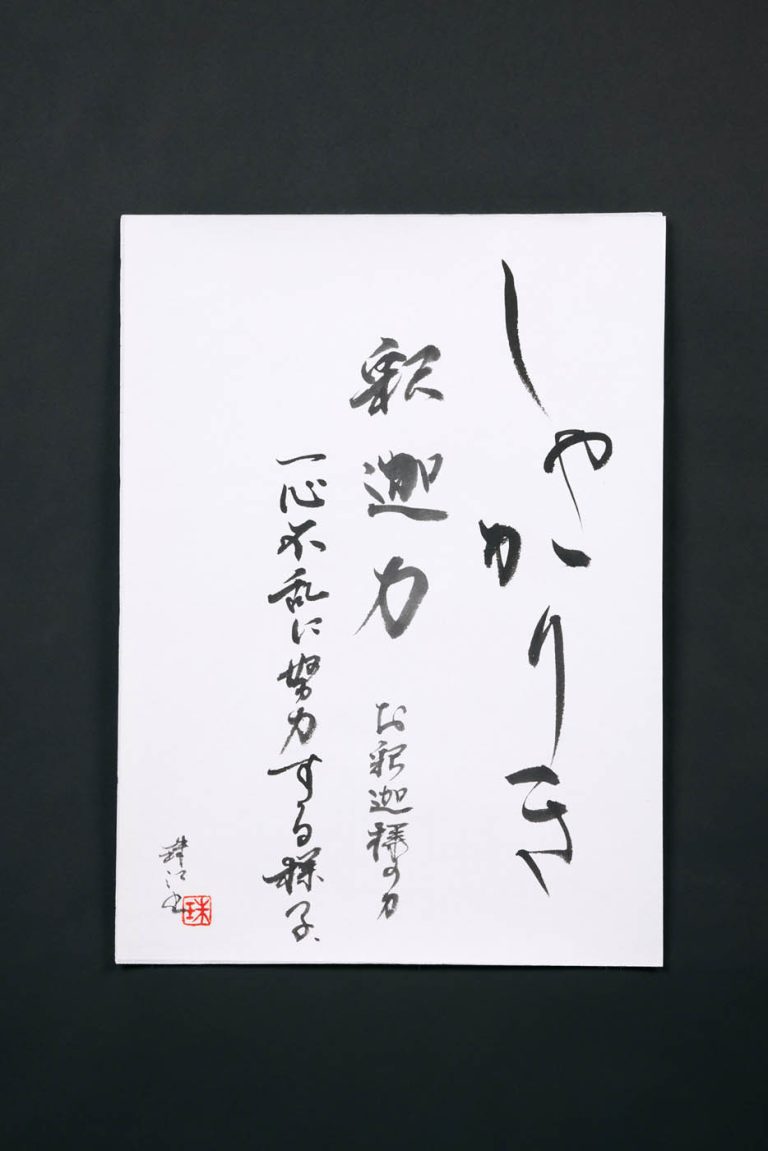 しゃかりき
釈迦力
お釈迦様の力
一心不乱に努力する様子、
珠